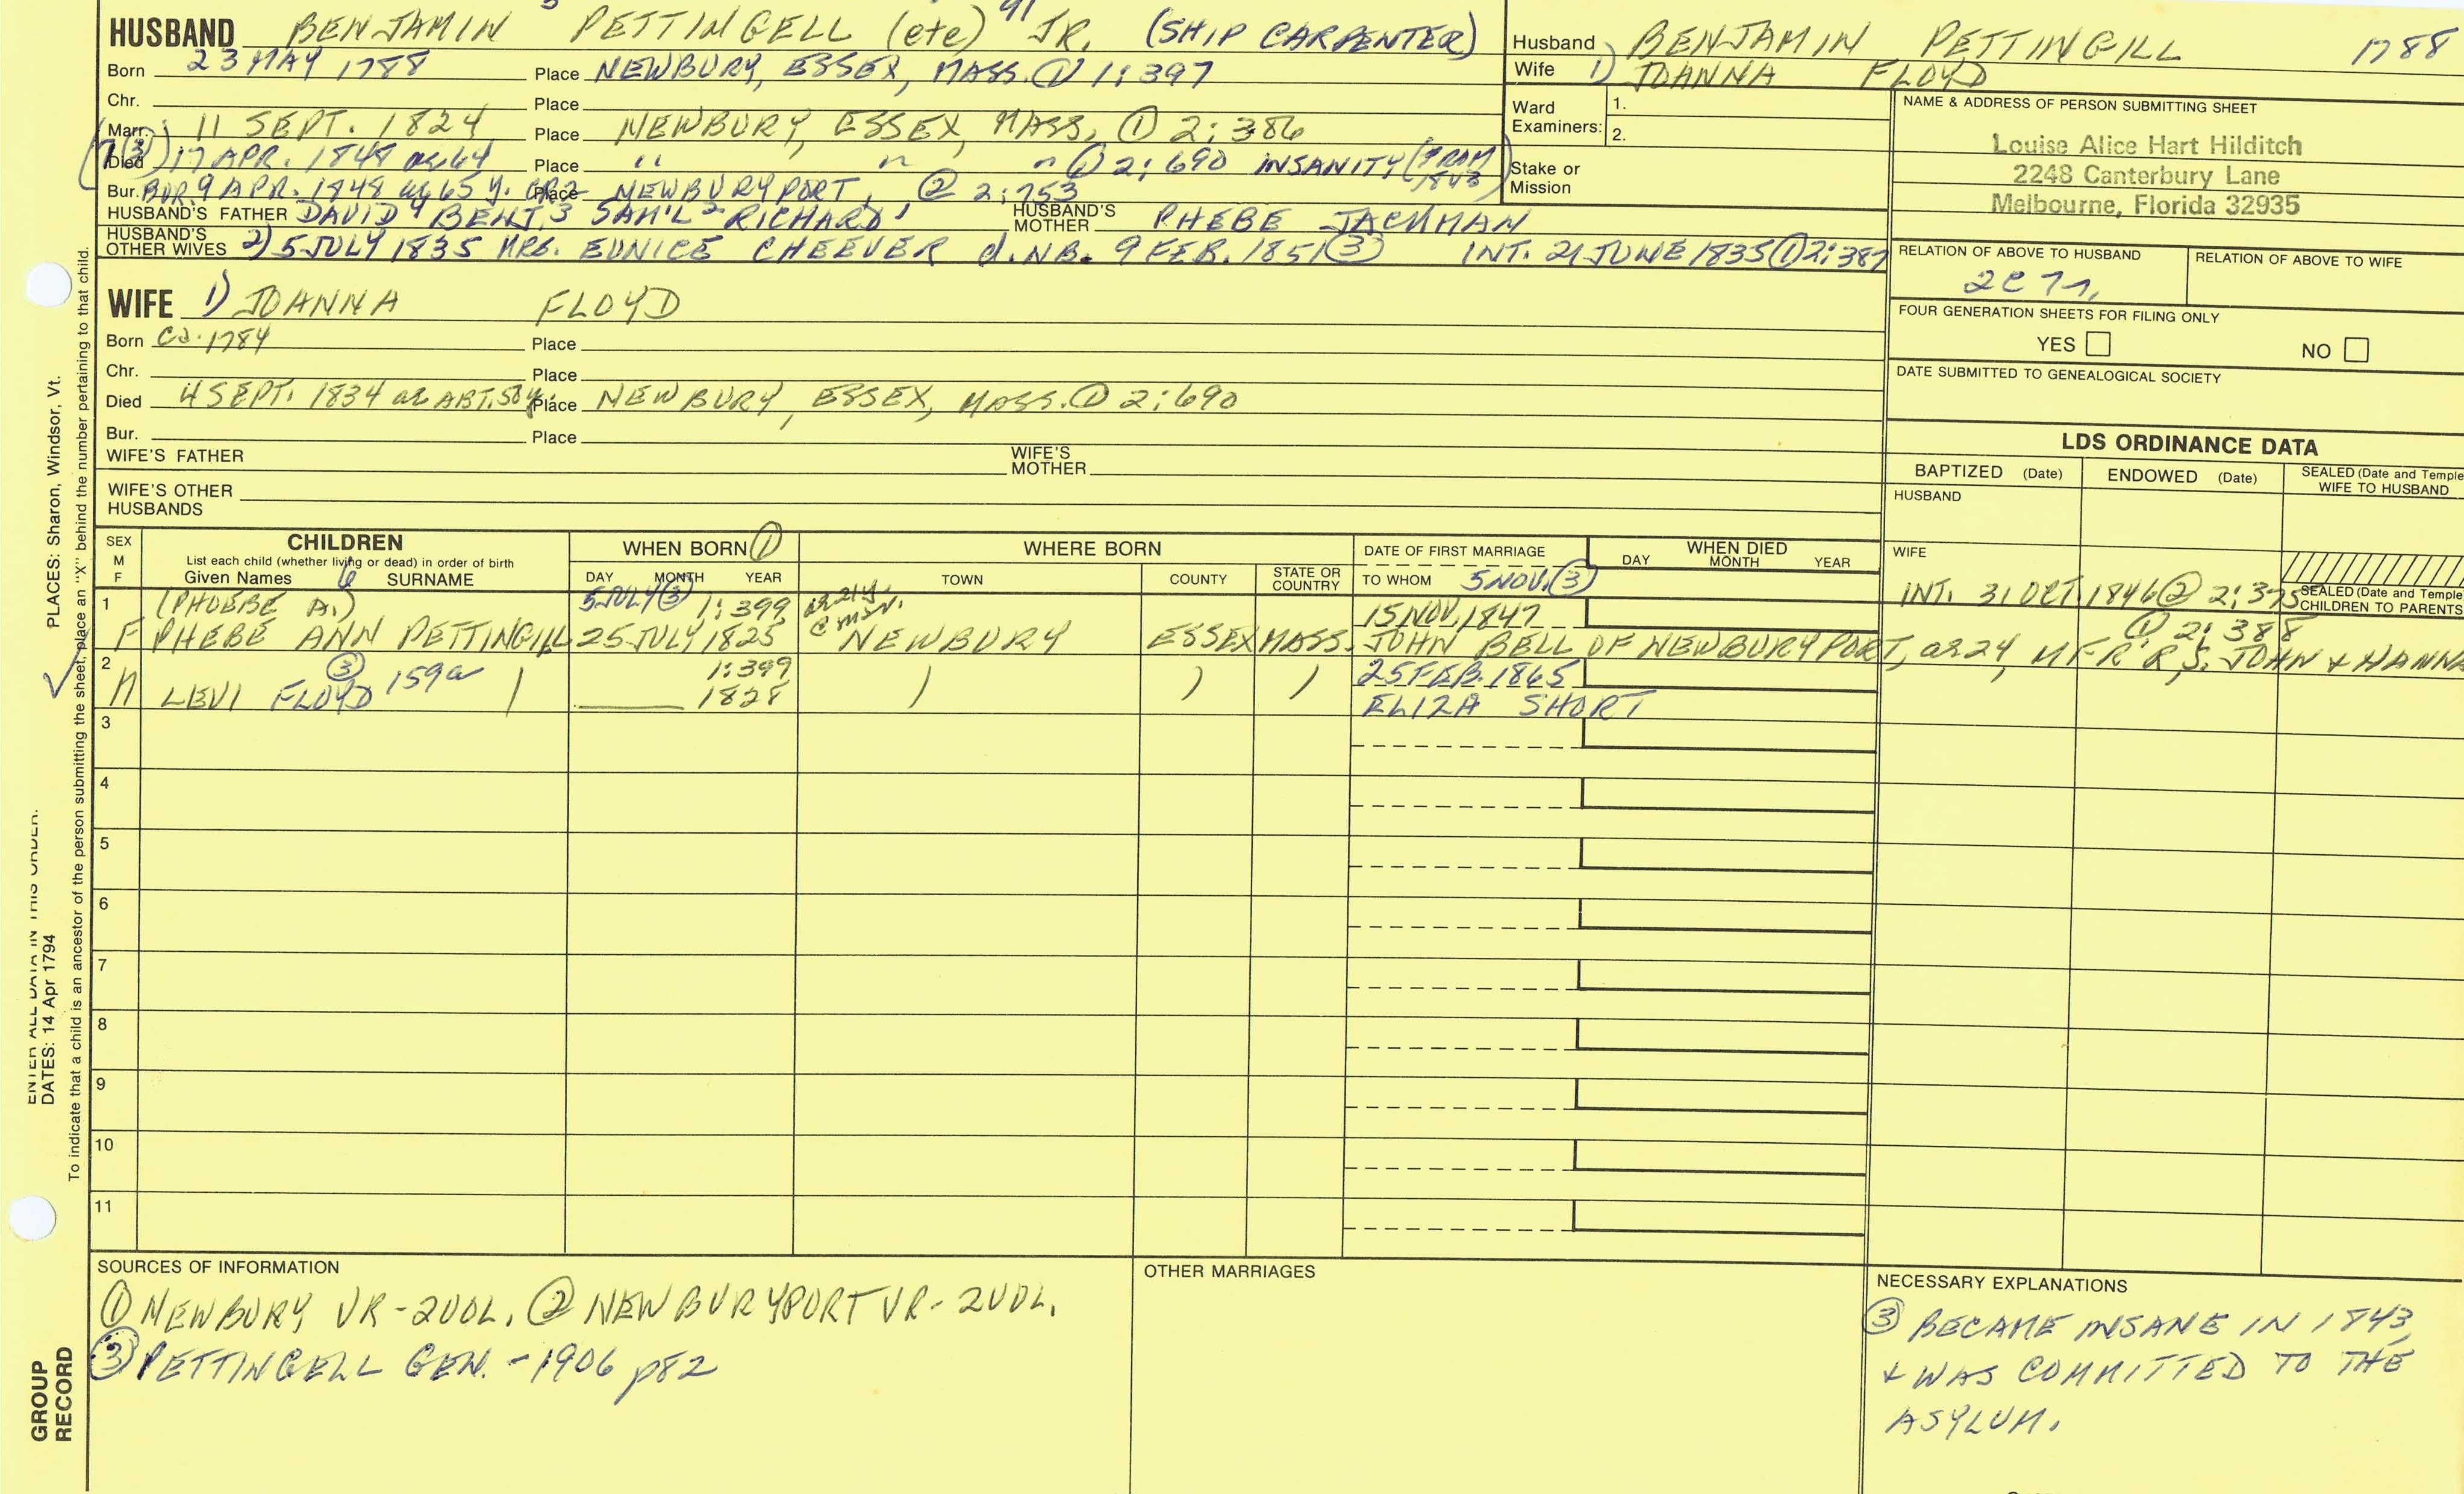 HUSBAND BENJAMIN PETTINGELL (ete) JR. (SHIP CARPENTER)
Born 23 MAY 1788 Place NEWBURY, ESSEX, MASS. ① 1:397
Chr. Place
Marr. 11 SEPT. 1824 Place NEWBURY, ESSEX, MASS. ① 2:386
Died (3) 17 APR. 1848 ae 64 Place " " " ① 2:690 INSANITY (FROM 1843)
Bur. BUR. 9 APR. 1848 ae 65 y. GR2 Place NEWBURYPORT, ② 2:753
HUSBAND'S FATHER DAVID4 BENJ.3 SAM'L2 RICHARD1 HUSBAND'S MOTHER PHEBE JACKMAN
HUSBAND'S OTHER WIVES 2) 5 JULY 1835 MRS. EUNICE CHEEVER d. NB. 9 FEB. 1851 ③ INT. 21 JUNE 1835 ① 2:387
WIFE 1) JOANNA FLOYD
Born ca. 1784 Place
Chr. Place
Died 4 SEPT. 1834 ae ABT. 50 y. Place NEWBURY, ESSEX, MASS. ① 2:690
Bur. Place
WIFE'S FATHER WIFE'S MOTHER
WIFE'S OTHER HUSBANDS
Husband BENJAMIN PETTINGILL 1788
Wife 1) JOANNA FLOYD
Ward Examiners: 1.
2.
Stake or Mission
NAME & ADDRESS OF PERSON SUBMITTING SHEET
Louise Alice Hart Hilditch
2248 Canterbury Lane
Melbourne, Florida 32935
RELATION OF ABOVE TO HUSBAND RELATION OF ABOVE TO WIFE
2C7r.
FOUR GENERATION SHEETS FOR FILING ONLY
YES NO
DATE SUBMITTED TO GENEALOGICAL SOCIETY
LDS ORDINANCE DATA
BAPTIZED (Date) ENDOWED (Date) SEALED (Date and Temple WIFE TO HUSBAND
HUSBAND
WIFE
SEALED (Date and Temple CHILDREN TO PARENTS
SEX M F
CHILDREN
List each child (whether living or dead) in order of birth
Given Names SURNAME
WHEN BORN ①
DAY MONTH YEAR
WHERE BORN
TOWN COUNTY STATE OR COUNTRY
DATE OF FIRST MARRIAGE
TO WHOM 5 NOV. ③
WHEN DIED
DAY MONTH YEAR
1 (PHOEBE A.) 5 JULY ③ 1:399 ae 21 y. @ mar. 15 NOV. 1847 INT. 31 OCT. 1846 ② 2:375 ① 2:388
F PHEBE ANN PETTINGILL 25 JULY 1825 NEWBURY ESSEX MASS. JOHN BELL OF NEWBURYPORT, ae 24, MFR'R, S. JOHN & HANNA
2 ③ 159a 1:399 25 FEB. 1865
M LEVI FLOYD 1828 ELIZA SHORT
3
4
5
6
7
8
9
10
11
SOURCES OF INFORMATION
① NEWBURY VR - 2 VOL. ② NEWBURYPORT VR - 2 VOL.
③ PETTINGELL GEN. - 1906 p82
OTHER MARRIAGES
NECESSARY EXPLANATIONS
③ BECAME INSANE IN 1843
& WAS COMMITTED TO THE
ASYLUM.
PLACES: Sharon, Windsor, Vt.
DATES: 14 Apr 1794
To indicate that a child is an ancestor of the person submitting the sheet, place an "X" behind the number pertaining to that child.
GROUP RECORD